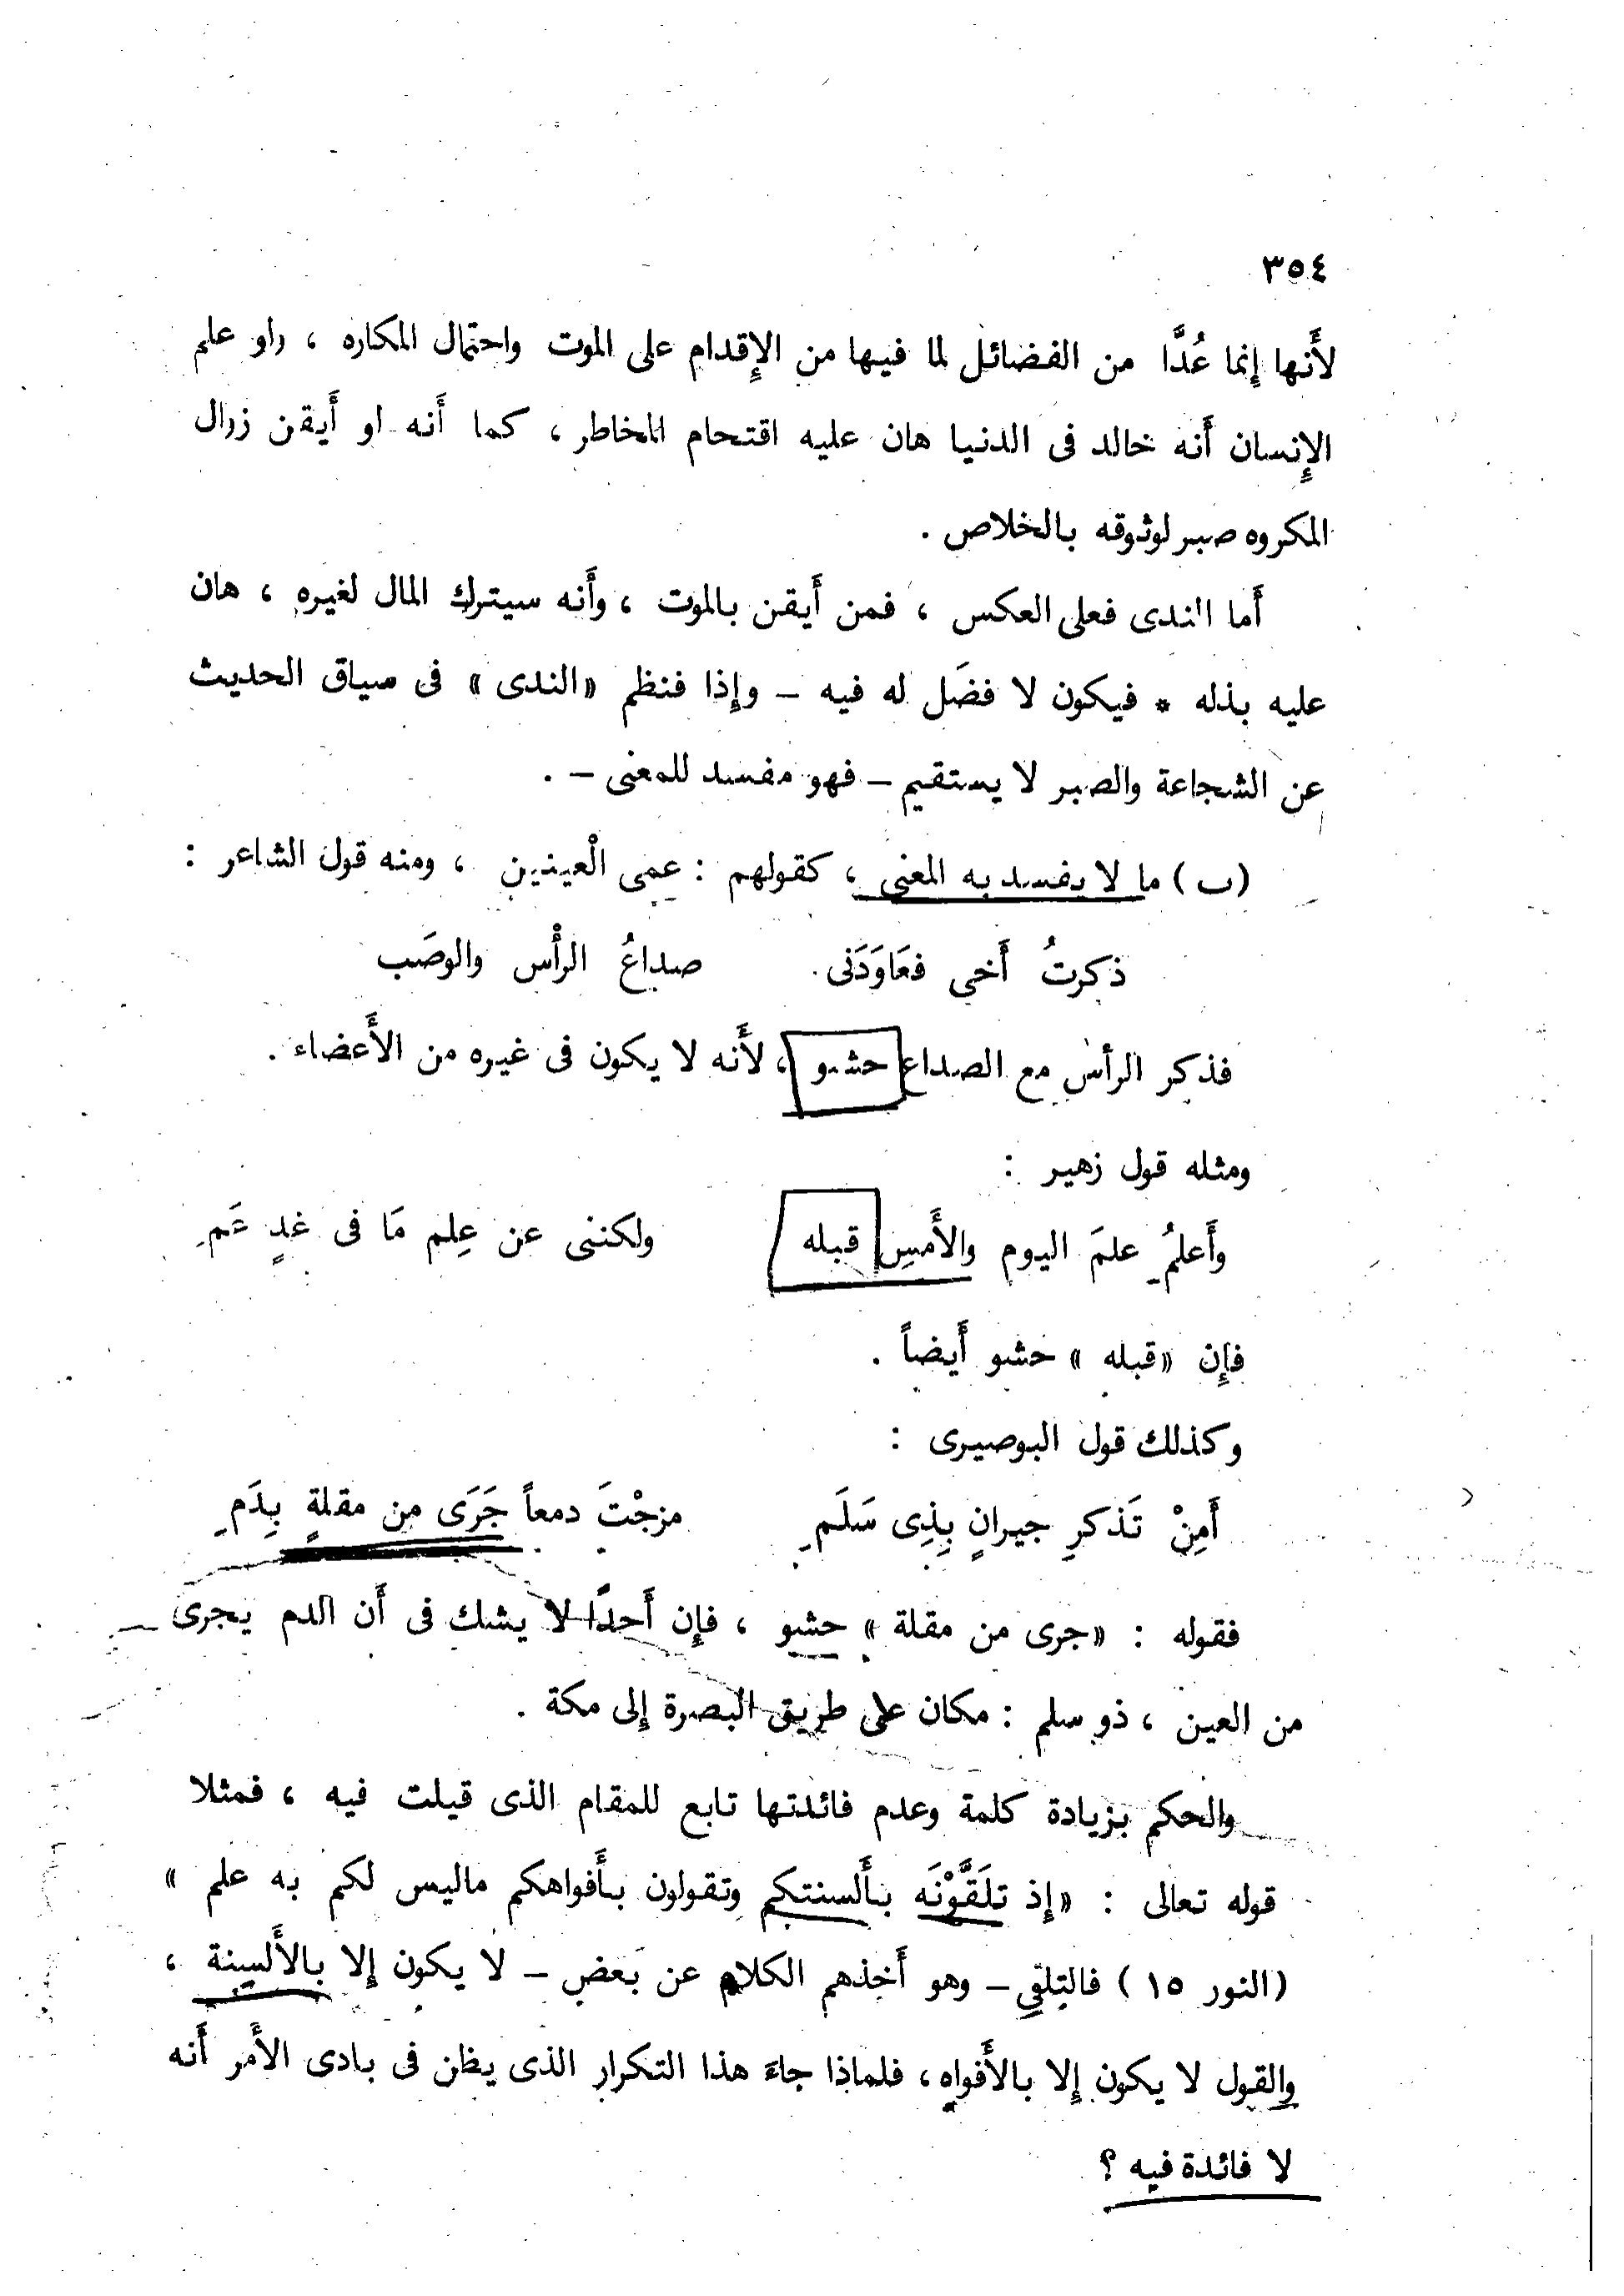 ٣٥٤
لأَنها إِنما عُدَّا من الفضائل لما فيها من الإِقدام على الموت واحتمال المكاره ، ولو علم
الإِنسان أَنه خالد فى الدنيا هان عليه اقتحام المخاطر ، كما أَنه لو أَيقن زوال
المكروه صبر لوثوقه بالخلاص .
أَما الندى فعلى العكس ، فمن أَيقن بالموت ، وأَنه سيترك المال لغيره ، هان
عليه بذله * فيكون لا فضَل له فيه – وإِذا فنظم «الندى» فى سياق الحديث
عن الشجاعة والصبر لا يستقيم – فهو مفسد للمعنى – .
(ب) ما لا يفسد به المعنى ، كقولهم : عمى الْعينين ، ومنه قول الشاعر :
ذكرتُ أَخى فعَاوَدَنى صداعُ الرأْس والوصَب
فذكر الرأس مع الصداع حشو ، لأَنه لا يكون فى غيره من الأَعضاء .
ومثله قول زهير :
وأَعلمُ علمَ اليوم والأَمسِ قبله ولكننى عن عِلم مَا فى غدٍ عَمِ
فإِن «قبله» حشو أَيضاً .
وكذلك قول البوصيرى :
أَمِنْ تَذكرِ جيرانٍ بِذِى سَلَمِ مزجْتَ دمعاً جَرَى من مقلةٍ بِدَمِ
فقوله : «جرى من مقلة» حشو ، فإِن أَحدًا لا يشك فى أَن الدم يجرى
من العين ، ذو سلم : مكان على طريق البصرة إِلى مكة .
والحكم بزيادة كلمة وعدم فائدتها تابع للمقام الذى قيلت فيه ، فمثلا
قوله تعالى : «إِذ تلَقَّوْنَه بأَلسنتكم وتقولون بأَفواهكم ماليس لكم به علم»
(النور ١٥) فالتلقى – وهو أَخذهم الكلام عن بَعض – لا يكون إِلا بالأَلسنة ،
والقول لا يكون إِلا بالأَفواه ، فلماذا جاءَ هذا التكرار الذى يظن فى بادى الأَمر أَنه
لا فائدة فيه ؟